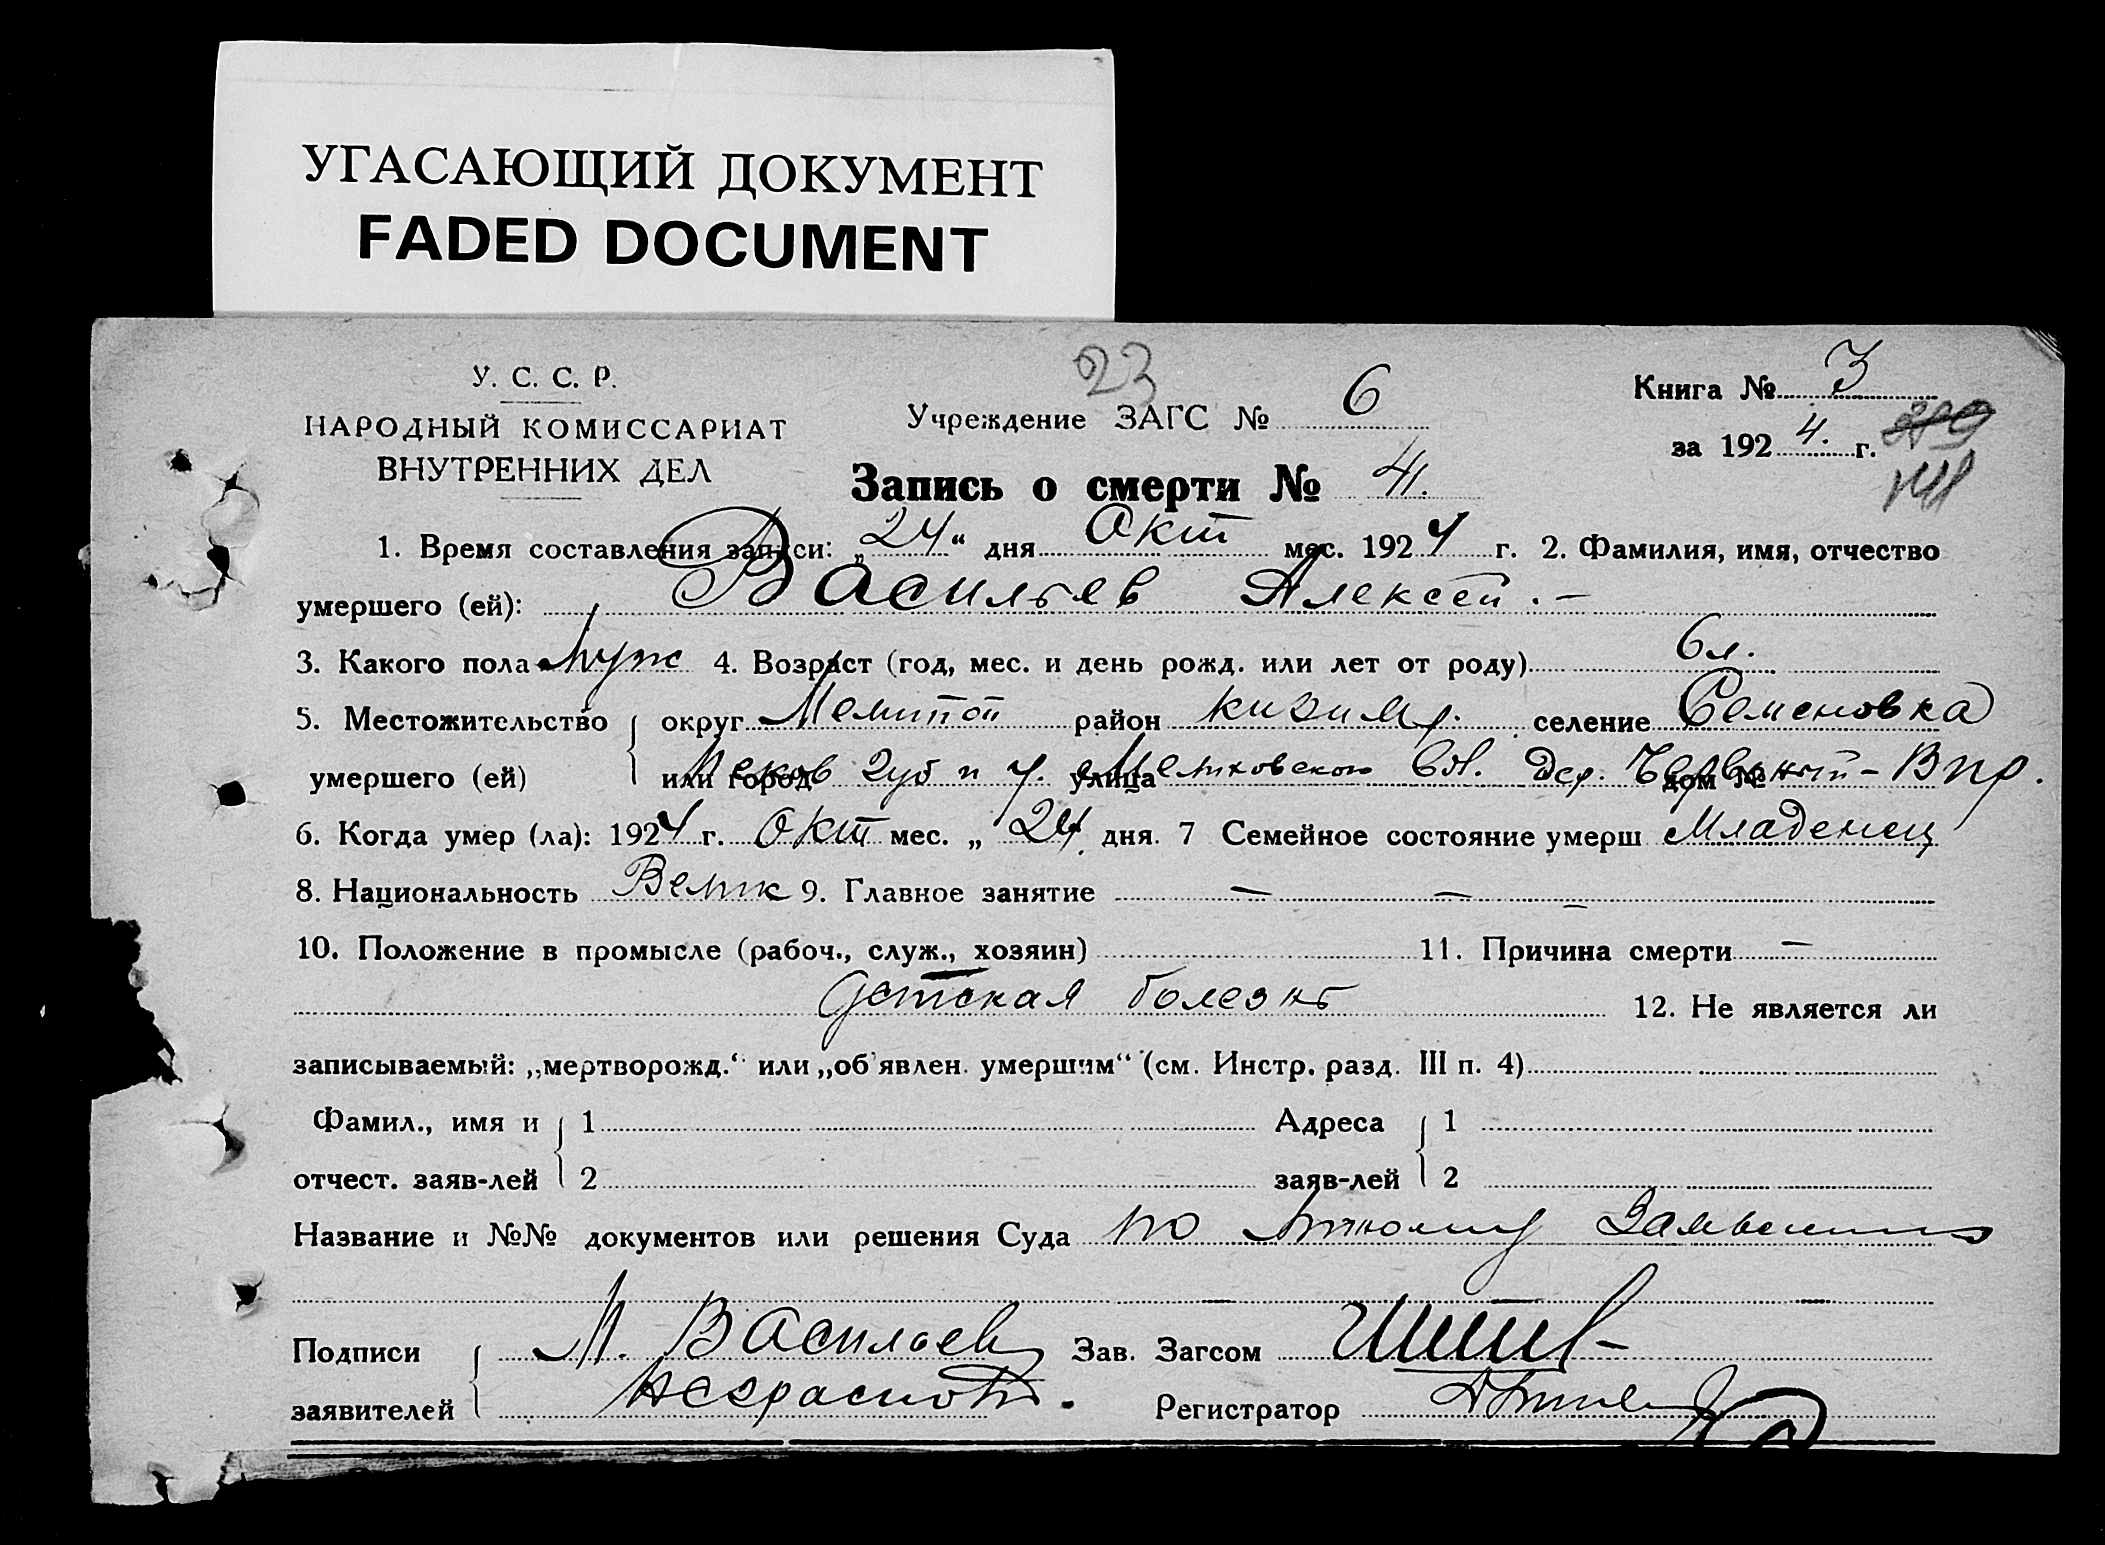 УГАСАЮЩИЙ ДОКУМЕНТ
FADED DOCUMENT
У. С. С. Р.
НАРОДНЫЙ КОМИССАРИАТ
ВНУТРЕННИХ ДЕЛ
23
Учреждение ЗАГС № 6
Книга № 3
за 1924. г.
Запись о смерти № 41.
1. Время составления записи: „24“ дня Окт мес. 1924 г. 2. Фамилия, имя, отчество
умершего (ей): Васильев Алексей. -
3. Какого пола Муж 4. Возраст (год, мес. и день рожд. или лет от роду) 6 л.
5. Местожительство округ Мелитоп район селение Семеновка
умершего (ей) или город Псков губ и у. улица дер. дом №
6. Когда умер (ла): 1924 г. Окт мес. „24 дня. 7 Семейное состояние умерш Младенец
8. Национальность Велик 9. Главное занятие — — —
10. Положение в промысле (рабоч., служ., хозяин) 11. Причина смерти —
Детская болезнь 12. Не является ли
записываемый: „мертворожд.“ или „об'явлен. умершим“ (см. Инстр. разд. III п. 4)
Фамил., имя и 1 Адреса 1
отчест. заяв-лей 2 заяв-лей 2
Название и №№ документов или решения Суда по
Подписи М. Васильев Зав. Загсом
заявителей Неграмотн. Регистратор